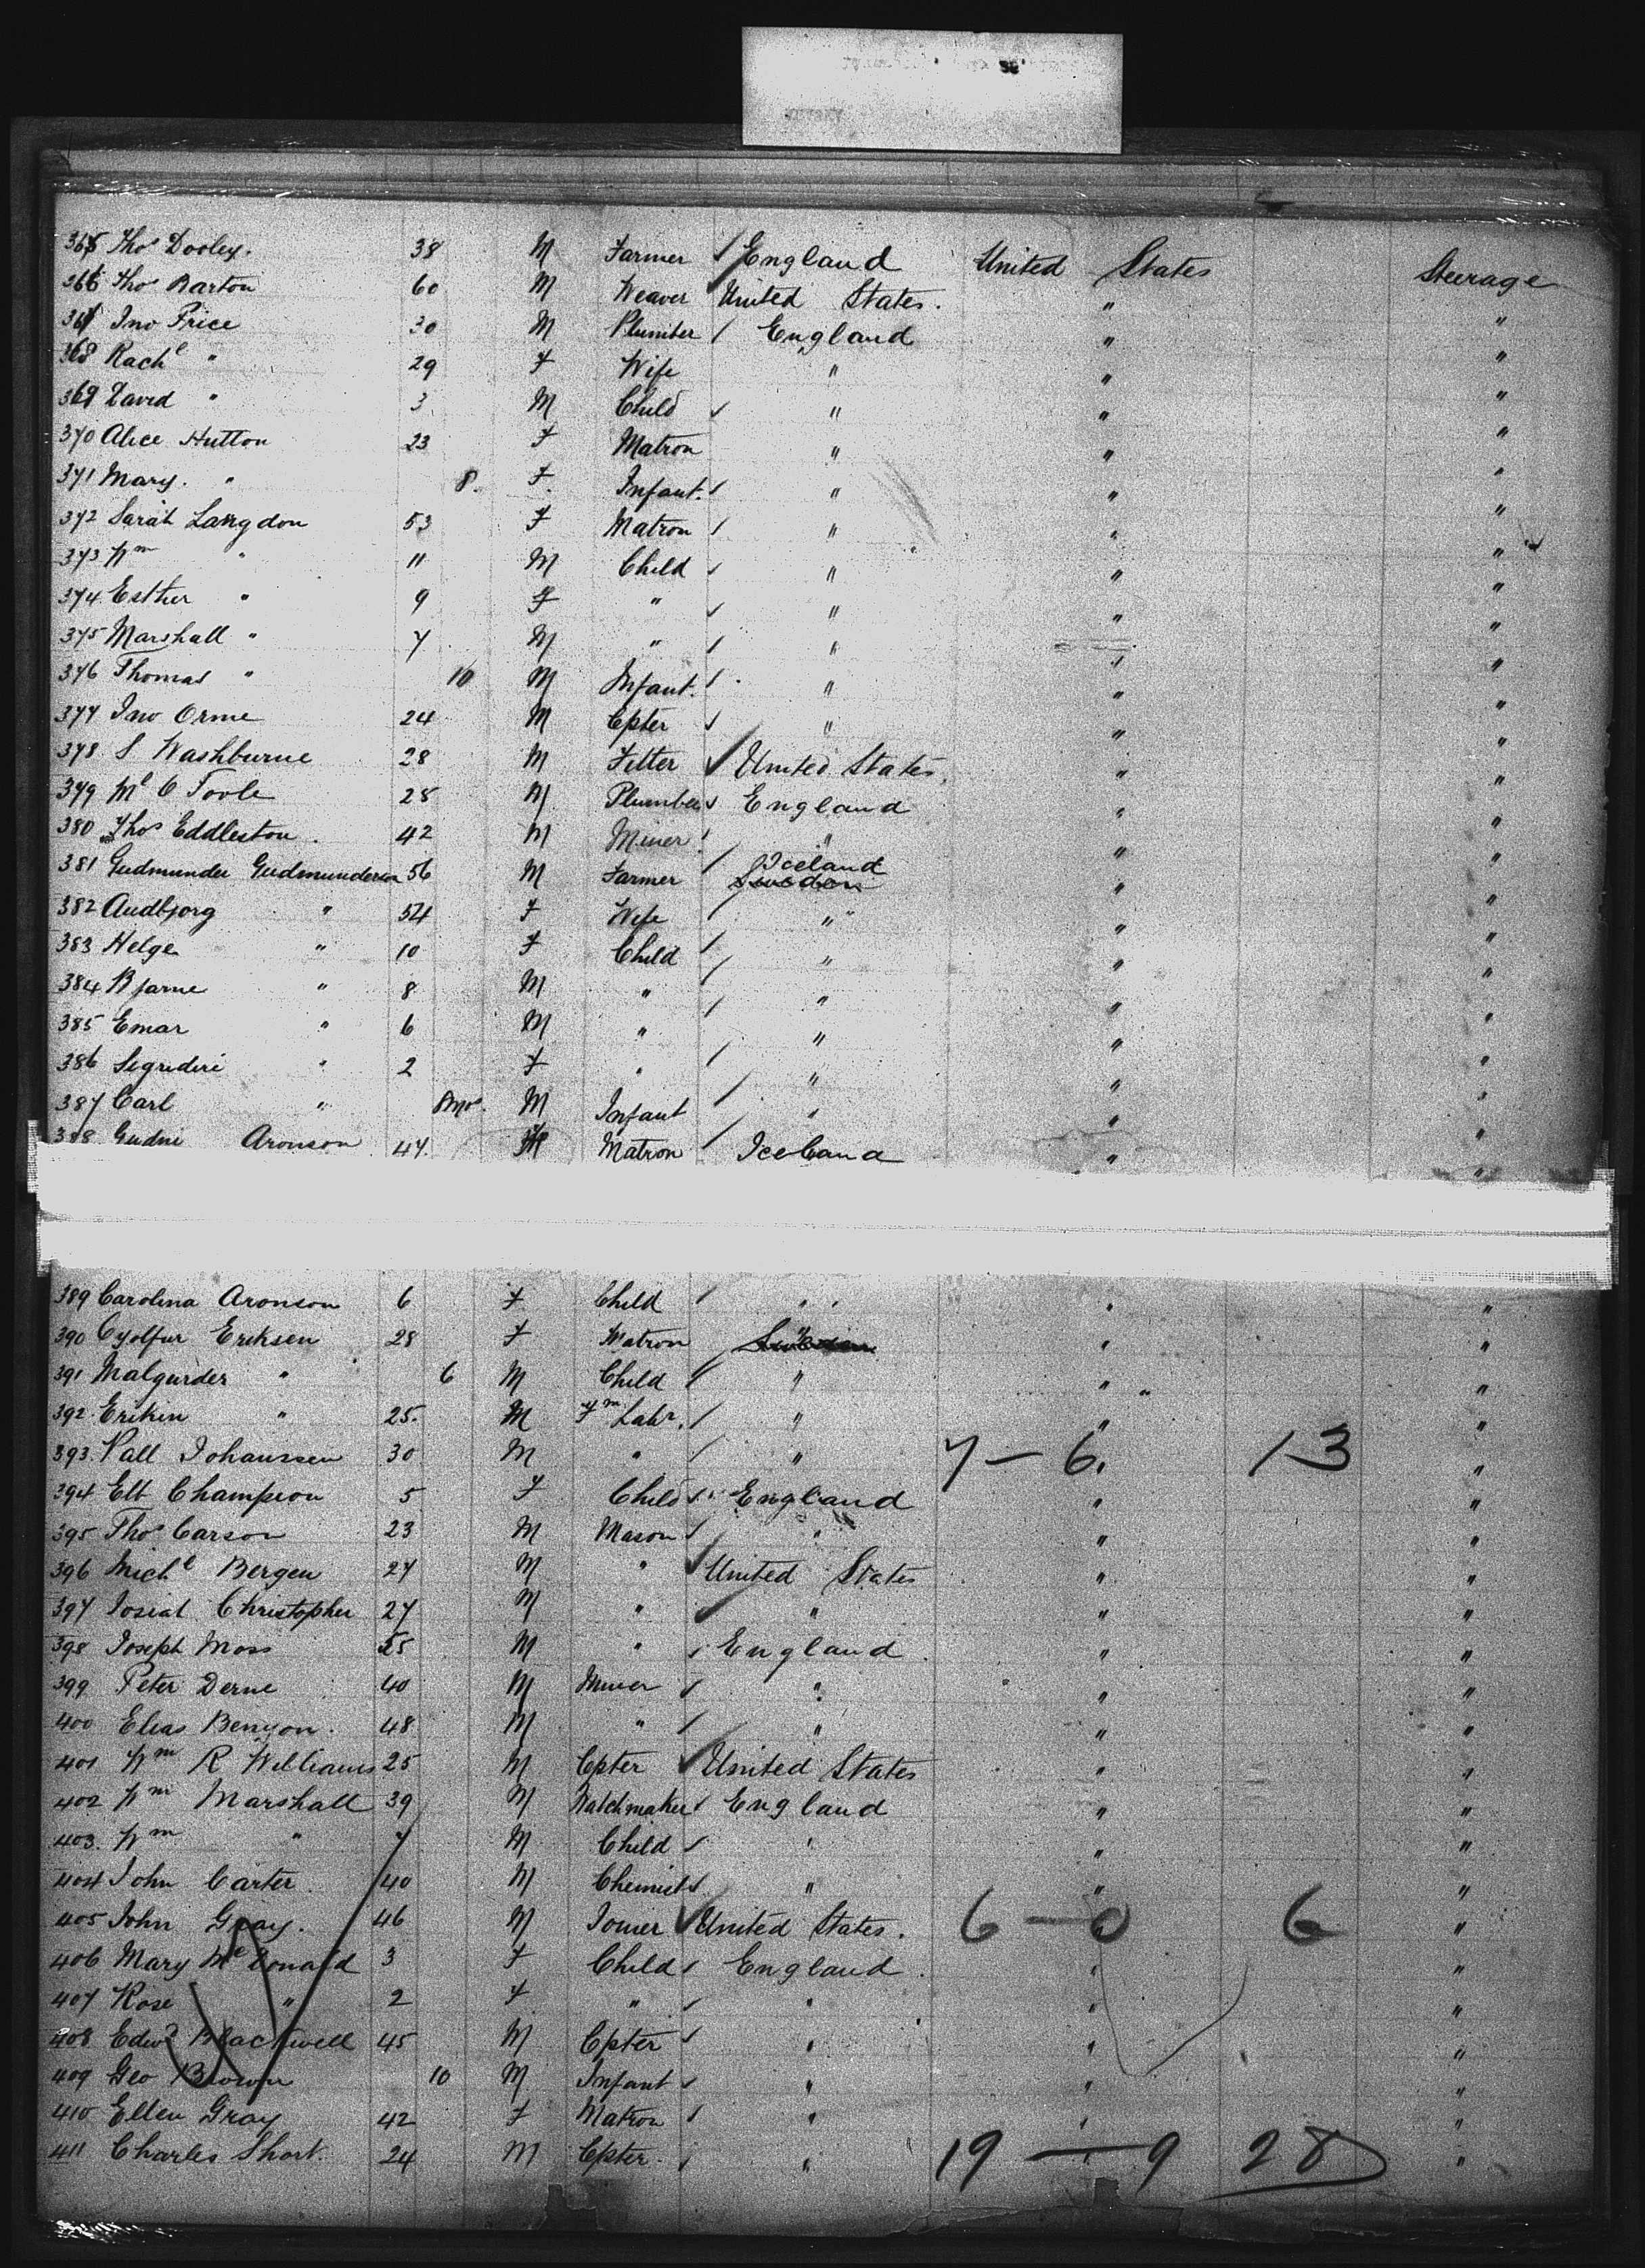 365 Thos Dooley. 38 M Farmer England United States Steerage
366 Thos Barton 60 M Weaver United States. " "
367 Jno Price 30 M Plumber England " "
368 Rachl " 29 F Wife " " "
369 David " 3 M Child " " "
370 Alice Hutton 23 F Matron " " "
371 Mary. " 8. F. Infant. " " "
372 Sarah Langdon 53 F Matron " " "
373 Wm " 11 M Child " " "
374 Esther " 9 F " " " "
375 Marshall " 7 M " " " "
376 Thomas " 10 M Infant. " " "
377 Jno Orme 24 M Cpter " " "
378 S Washburne 28 M Fitter United States. " "
379 Ml O Toole 28 M Plumber England " "
380 Thos Eddleston. 42 M Miner " " "
381 Gudmunder Gudmunderson 56 M Farmer Iceland Sweden " "
382 Audbjorg " 54 F Wife " " "
383 Helge " 10 F Child " " "
384 Bjarne " 8 M " " " "
385 Emar " 6 M " " " "
386 Segrideri " 2 F " " " "
387 Carl " 8 mos. M Infant " " "
388 Gudni Aronson 47. Matron Iceland " "
389 Carolina Aronson 6 F Child " " "
390 Eyolfur Eriksen 28 F Matron Sweden " "
391 Malgurder " 6 M Child " " "
392. Erikin " 25. M Fm Labr. " " "
393. Pall Johanssen 30 M " " " "
7 – 6 13
394 Elt Champion 5 F Child England " "
395 Thos Carson 23 M Mason " " "
396 Michl Bergen 27 M " United States " "
397 Josiah Christopher 27 M " " " "
398 Joseph Moss 25 M " England " "
399 Peter Derne 40 M Miner " " "
400 Elias Benyon. 48 M " " " "
401 Wm R Williams 25 M Cpter United States " "
402 Wm Marshall 39 M Watchmaker England " "
403. Wm " 7 M Child " " "
404 John Carter 40 M Chemist " " "
405 John Gray. 46 M Joiner United States. " "
6 – 0 6
406 Mary McDonald 3 F Child England " "
407 Rose " 2 F " " " "
408 Edwd Blackwell 45 M Cpter " " "
409 Geo Brown 10 M Infant " " "
410 Ellen Gray 42 F Matron " " "
411 Charles Short. 24 M Cpter. " " "
19 – 9 28